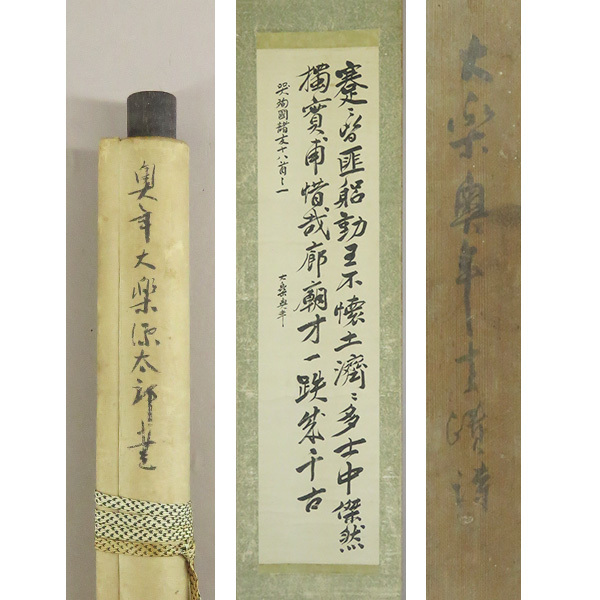 奥年大楽源太郎書
蹇々皆匪躬勤王不懷土濟々多士中傑然
獨實甫惜哉廊廟才一跌成千古
哭殉國諸友十八首之一
大樂奥年
大楽奥年 士濟詩